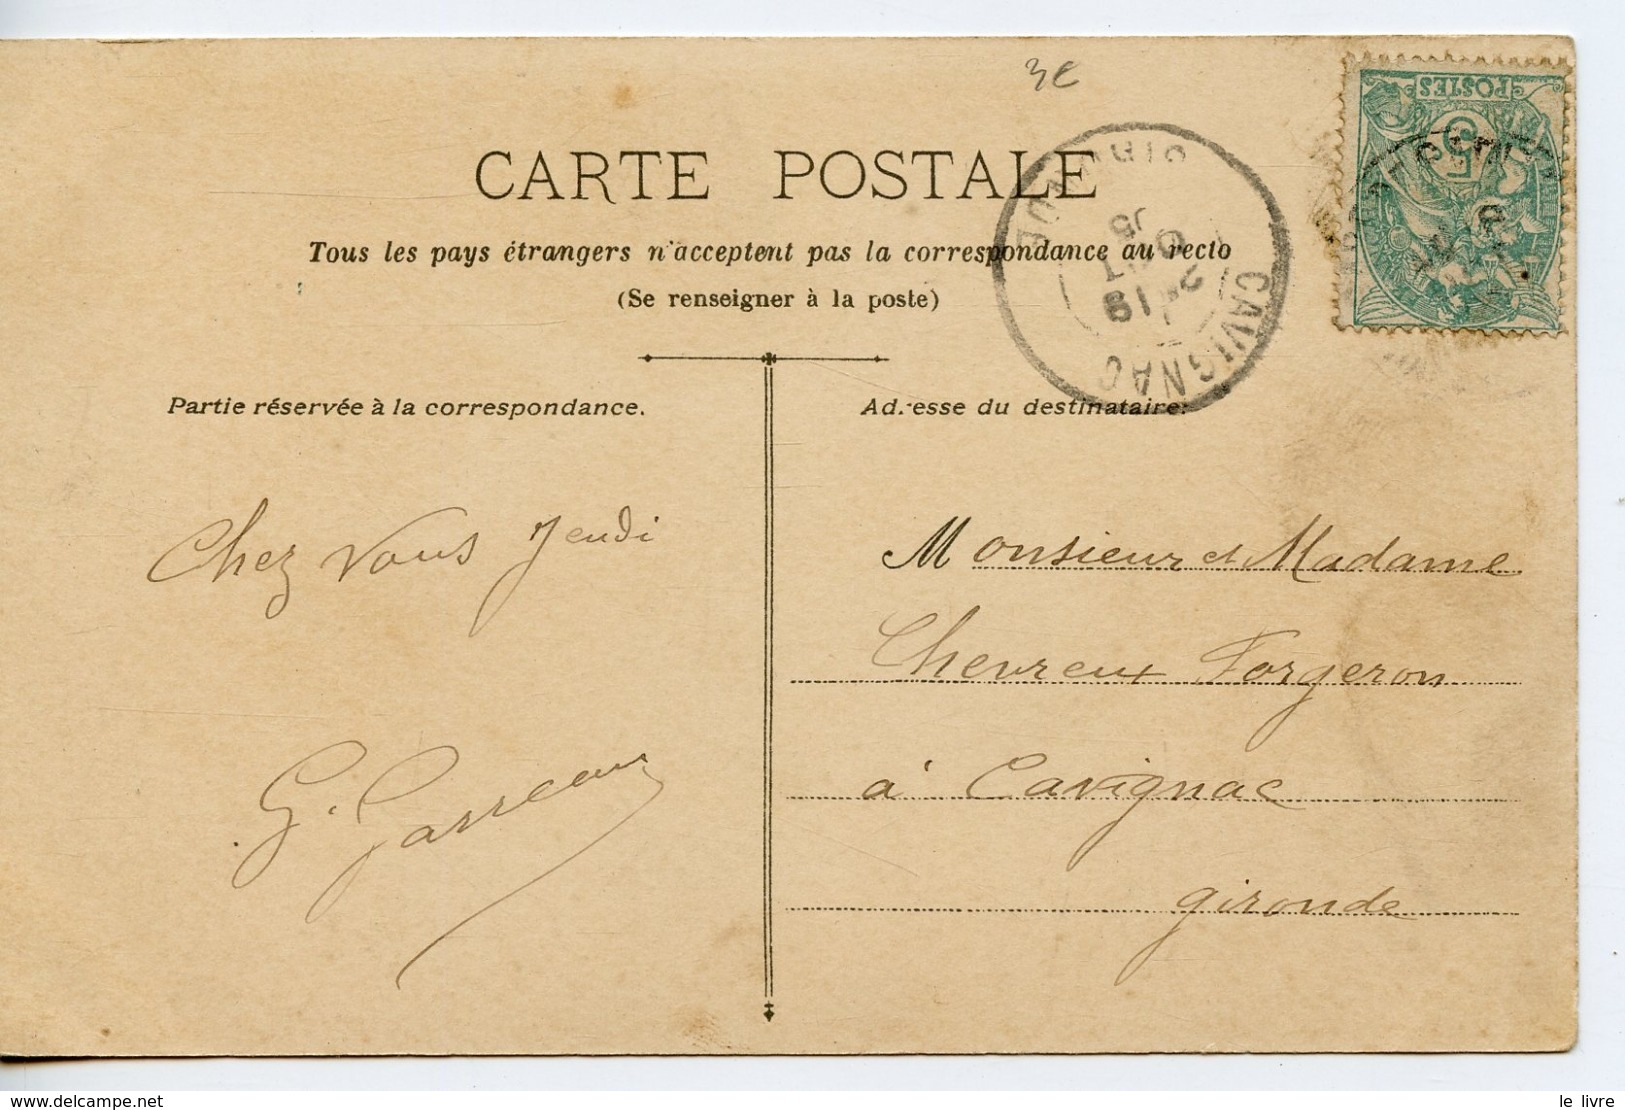 3€
CARTE POSTALE
Tous les pays étrangers n'acceptent pas la correspondance au recto
(Se renseigner à la poste)
POSTES
5
CAVIGNAC
GIRONDE
19
OCT
05
Partie réservée à la correspondance.
Adresse du destinataire:
Chez vous Jeudi
G. Garreau
Monsieur et Madame
Chevreux Forgeron
à Cavignac
gironde
www.delcampe.net
le livre